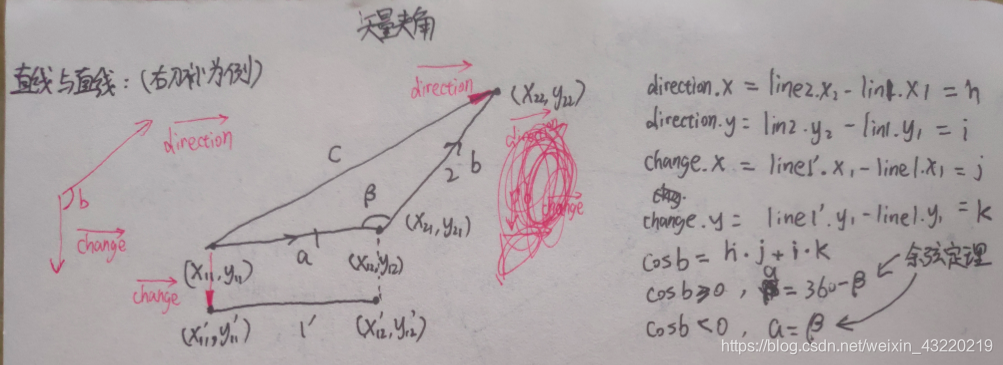 矢量夹角
直线与直线：(右刀补为例)
direction
b
change
direction
C
β
a
2 b
(X22, y22)
(X21, y21)
(X11, y11)
(X12, y12)
change
1'
(X11', y11')
(X12', y12')
change
direction.x = line2.x2 - lin1.x1 = h
direction.y = lin2.y2 - lin1.y1 = i
change.x = line1'.x1 - line1.x1 = j
change.y = line1'.y1 - line1.y1 = k
cosb = h·j + i·k
cosb≥0, a = 360-β
余弦定理
cosb<0, a = β
https://blog.csdn.net/weixin_43220219